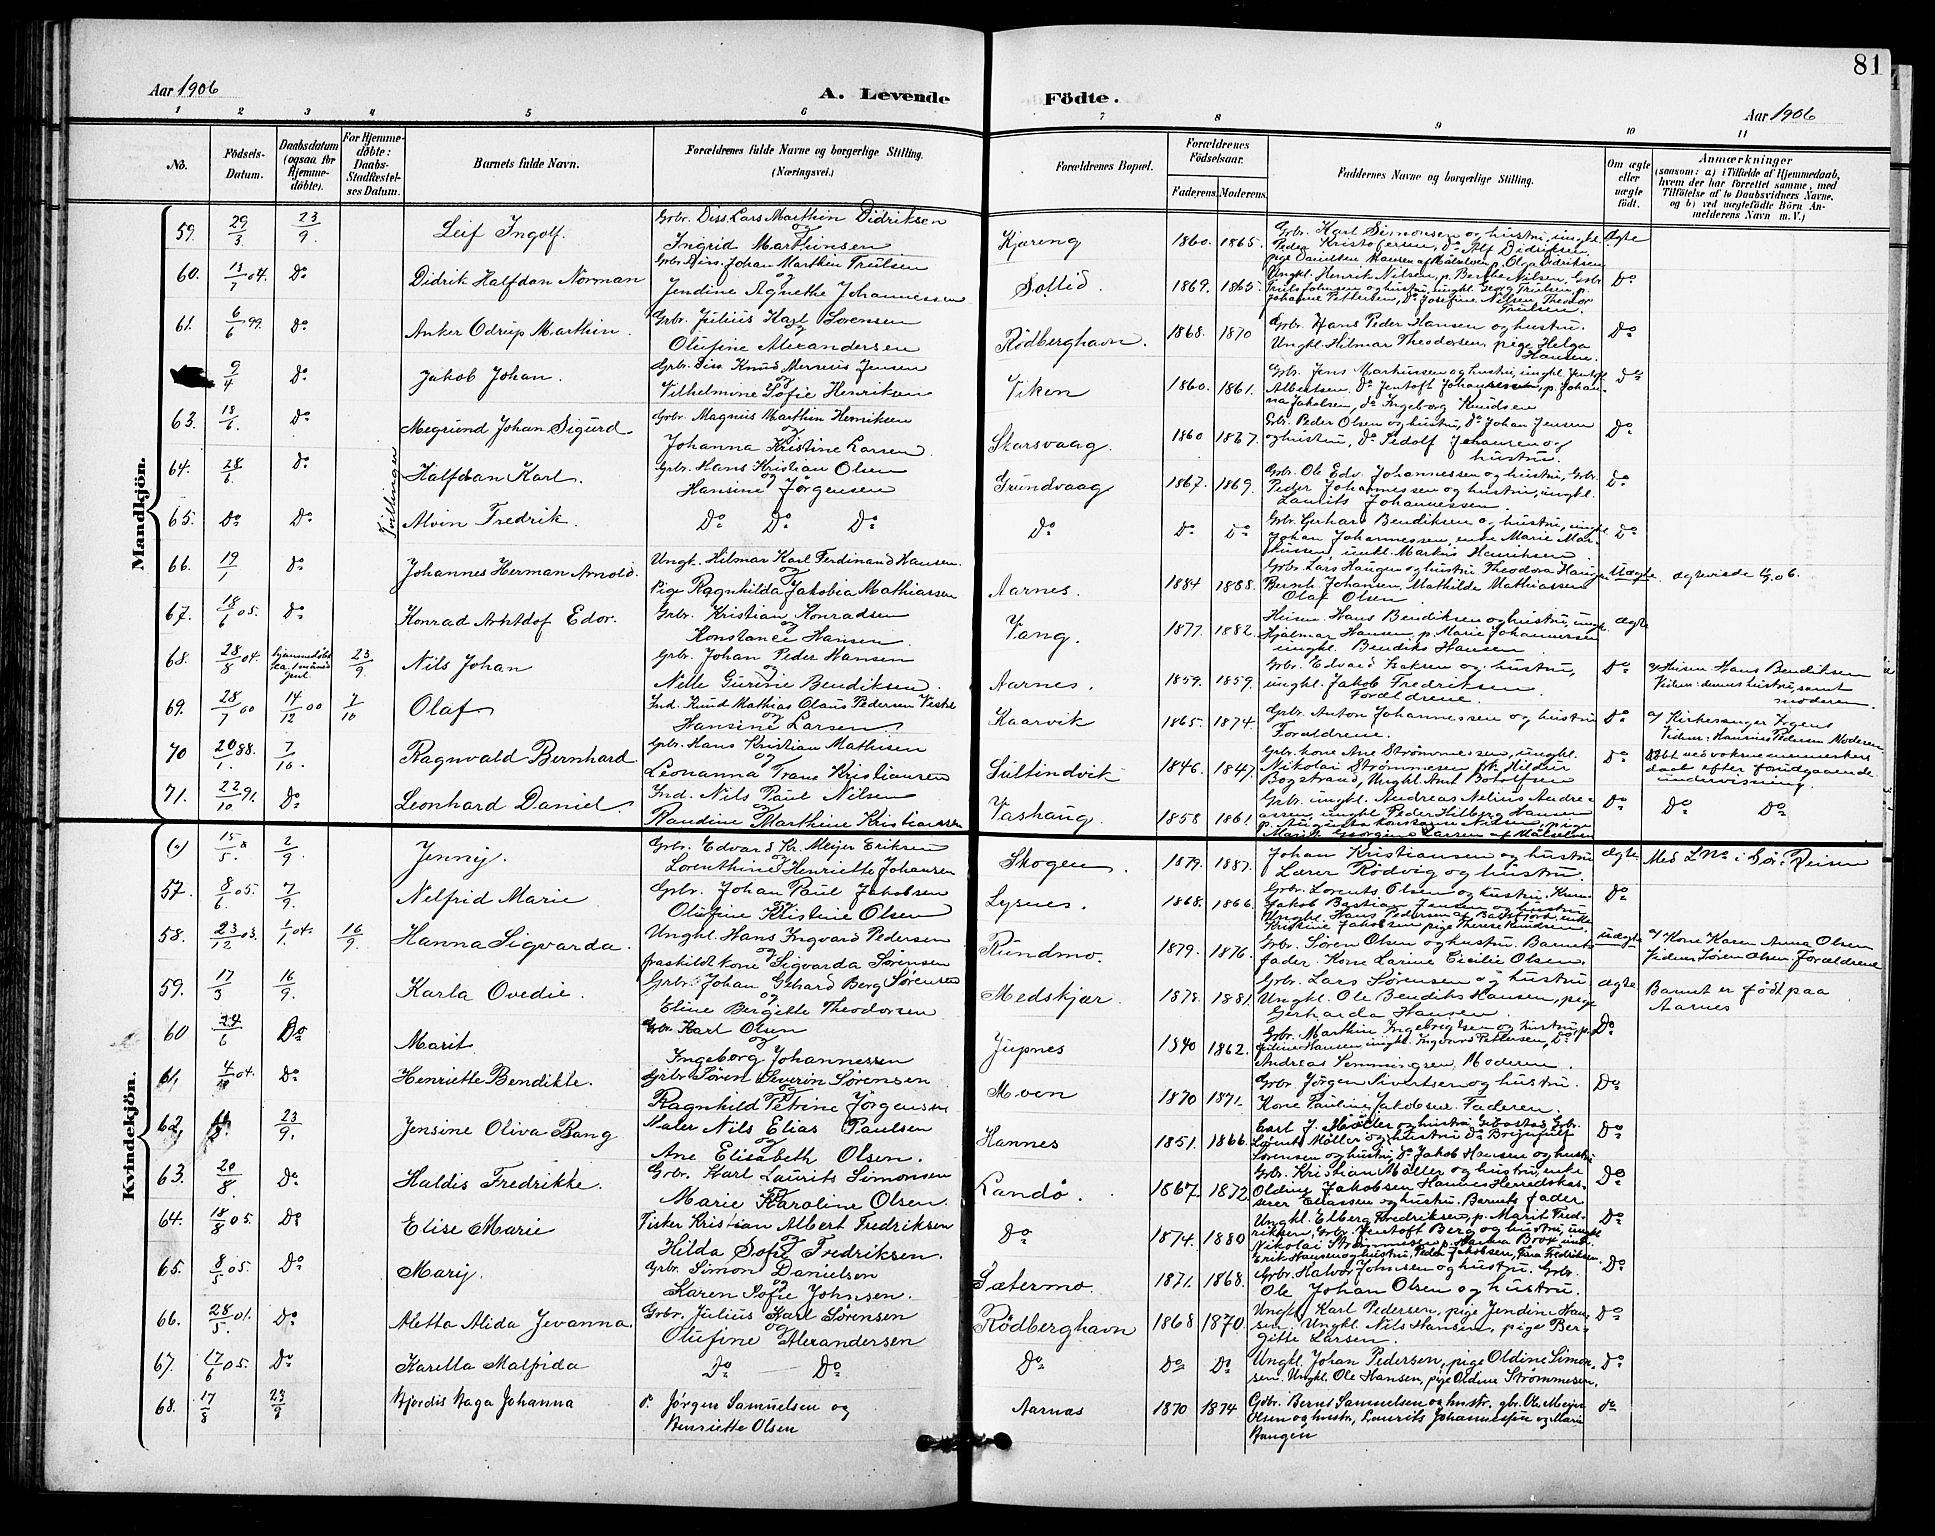 81
Aar 1906
A. Levende
Födte.
Aar 1906
1 2 3 4 5 6 7 8 9 10 11
No.
Födsels-Datum.
Daabsdatum (ogsaa for Hjemmedöbte).
For Hjemmedöbte: Daabs-Stadfæstelses Datum.
Barnets fulde Navn.
Forældrenes fulde Navne og borgerlige Stilling. (Næringsvei.)
Forældrenes Bopæl.
Forældrenes Födselsaar.
Faderens. Moderens.
Faddernes Navne og borgerlige Stilling.
Om ægte eller uægte födt.
Anmærkninger
(saasom: a) i Tilfælde af Hjemmedaab, hvem der har forrettet samme, med Tilföielse af to Daabsvidners Navne, og b) ved uegtefödte Börn Anmelderens Navn m. V.)
Mandkjön.
59. 29/3 23/9 Leif Ingolf. Grbr. Diss. Lars Marthin Didriksen og Ingrid Marthinsen Kjæreng 1860. 1865. Grbr. Karl Simonsen og hustru, ungkl. Peder Kristofersen, Do Alf Didriksen, pige Danielsen Hansen af Målselven, p. Olga Didriksen ægte
60. 13/7 04. Do Didrik Halfdan Norman Grbr. Diss. Johan Marthin Trulsen og Jendine Agnethe Johannessen Sollid. 1869. 1865. Ungkl. Henrik Nilsen, p. Berthe Nilsen, Grbr. Truls Johnsen og hustru, ungkl. Georg Trulsen, p. Johanne Pettersen, Do Josefine Nilsen, Theodor Trulsen. Do
61. 6/6 99. Do Anker Odrup Marthin. Grbr. Julius Karl Sørensen og Olufine Alexandersen Rödberghavn. 1868. 1870 Grbr. Hans Peder Hansen og hustru. Ungkl. Hilmar Theodorsen, pige Helga Hansen. Do
9/4 Do Jakob Johan. Grbr. Diss. Knud Merseus Jensen og Vilhelmine Sofie Henriksen Viken 1860. 1861. Grbr. Jens Markussen og hustru, ungkl. Jentoft Albertsen, Do Jentoft Johansen, p. Johanna Jakobsen, Do Ingeborg Knudsen Do
63. 18/6. Do Megrund Johan Sigurd. Grbr. Magnus Marthin Henriksen og Johanna Kristine Larsen. Skarsvaag. 1860 1867. Grbr. Peder Olsen og hustru, Do Johan Jensen og hustru, Do Pedolf Johansen og hustru. Do
Tvillinger
64. 28/6 Do Halfdan Karl. Grbr. Hans Kristian Olsen og Hansine Jørgensen Grundvaag 1867. 1869. Grbr. Ole Edv. Johannessen og hustru, Grbr. Peder Johannessen og hustru, ungkl. Laurits Johannessen. Do
65. Do Do Alvin Fredrik. Do Do Do Do Do Do Grbr. Gerhard Bendiksen og hustru, ungkl. Johan Johannessen, enke Marie Markussen, unkl. Markus Henriksen. Do
66. 19/1 Do Johannes Herman Arnold. Ungk. Hilmar Karl Ferdinand Hansen. og Pige Ragnhilda Jakobia Mathiassen Aarnes. 1884 1888. Grbr. Lars Haugen og hustru Theodora Haugen Bernh. Johansen, Mathilde Mathiassen Olaf Olsen. Uægte. ægtevisde 4/9 06.
67. 18/6 05. Do Konrad Arntdof Edor. Grbr. Kristian Konradsen og Konstance Hansen Vang. 1877. 1882. Husm. Hans Bendiksen og hustru, ungk. Hjalmar Hansen, p. Marie Johannessen ungkl. Bendiks Hansen. ægte
68. 28/8 04. hjemmedöbt ca. 1 maaned gml 23/9. Nils Johan Grbr. Johan Peder Hansen og Nelle Gurine Bendiksen. Aarnes. 1859. 1859. Grbr. Edvard Isaksen og hustru, ungkl. Jakob Fredriksen. Forældrene. Do a/ Husm. Hans Bendiksen Vidner: dennes hustru, samt moderen.
69. 28/7 00 14/12 00 7/10 Olaf Ind. Knud Mathias Olaus Pedersen og Hansine Larsen Kaarvik 1865. 1874. Grbr. Anton Johannessen og hustru Forældrene. Do a/ Kirkesanger Irgens Vidner: Hansine Pedersen Moderen
70 20/1. 88. 7/10 Ragnvald Bernhard Grbr. Hans Kristian Mathisen og Leonanna Trane Kristiansen Sultindvik 1846. 1847. Grbr. kone Ane Strømmesen, ungkl. Nikolai Strømmesen, pk. Hildur Bogstrand, Ungkl. Arnt Botolfsen Do Döbt ved voksnemennerkers daab efter foudgaaende undervisning.
71. 22/10 91. Do Leonhard Daniel Ind. Nils Paul Nilsen og Randine Marthine Kristiansen Vashaug. 1858 1861. Grbr. ungkl. Andreas Nelius Andreassen, ungkl. Peder Hilberg Hansen p. Augusta Konstanse Nilsen, pige Marit Georgine Larsen af Målselven Do Do Do
Kvindekjön.
(0) 15/5. 2/9 Jenny. Grbr. Edvard Kr. Meijer Eriksen og Lorenthine Henriette Johansen Skogen. 1879. 1887. Johan Kristiansen og hustru Lærer Rödvig og hustru. ægte. Med L No i Sör-Reisen
57. 8/6 05. 7/9. Nelfrid Marie Grbr. Johan Paul Jakobsen og Olufine Kristine Olsen Lysnes. 1868. 1866. Grbr. Lorents Olsen og hustru, Husm. Jakob Bastian Jensen og hustru Ungkl. Hans Pedersen af Balsfjord, enke Kristine Jakobsen, pige Therese Knudsen. Do
58. 23/12 03. 1/1. 04. 16/9. Hanna Sigvarda. Ungkl. Hans Ingvard Pedersen og fraskildt kone Sigvarda Sørensen Rundmo. 1879. 1876. Grbr. Søren Olsen og hustru. Barnets fader. Kone Larine Cicilie Olsen. uægte a/ Kone Karen Anna Olsen Vidner Søren Olsen, Forældrene
59. 17/3 16/9. Karla Ovedie. Grbr. Johan Gehard Berg Sørensen og Eline Birgitte Theodorsen Medskjær. 1878. 1881. Grbr. Lars Sørensen og hustru Ungkl. Ole Bendiks Hansen, pige Gerharda Hansen. ægte Barnet er födt paa Aarnes
60 24/6 Do Marit Grbr. Karl Olsen og Ingeborg Johannessen Jupnes 1840 1862. Grbr. Marthin Ingebregtsen og hustru, p. Juline Hansen, ungkl. Ingvard Pettersen, Do Andreas Semmingsen. Moderen. Do
61, 4/10 04. Do Henriette Bendikte. Grbr. Søren Severin Sørensen og Ragnhild Petrine Jørgensen Moen 1870 1871. Grbr. Jørgen Sivertsen og hustru. Kone Pauline Jakobsen. Faderen. Do
62, 23/9. Jensine Oliva Bang Maler Nils Elias Paulsen og Ane Elisabeth Olsen. Hannes 1851. 1866. Carl J. Møller og hustru Gibostad, Grbr. Lorents Möller og hustru Do Brigifulf Sörensen og hustru, Do Jakob Hansen og hustru Do
63. 20/8. Do Haldis Fredrikke. Grbr. Karl Laurits Simonsen og Marie Karoline Olsen. Landö. 1867. 1872. Grbr. Kristian Möller og hustru, enke Oldine Jakobsen Hannes, Herredskasserer Eliassen og hustru. Barnets fader Do
64. 18/8 05. Do Elise Marie Fisker Kristian Albert Fredriksen og Hilda Sofie Fredriksen. Do 1874. 1880 Ungkl. Elberg Fredriksen, p. Marit Fredriksen, Grbr. Jentoft Berg og hustru, ungkl. Nikolai Strømmesen, p. Hanna Brox, und. Erik Hansen og hustru, Peder Jakobsen, Tina Fredriksen. Do
65. 8/5 05. Do Mary. Grbr. Simon Danielsen og Karen Sofie Johnsen. Sætermo. 1871. 1868. Grbr. Halvor Johnsen og hustru. Grbr. Ole Johan Olsen og hustru. Do
66. 28/5. 01. Do Aletta Alida Jevanna. Grbr. Julius Karl Sørensen og Olufine Alexandersen Rödberghavn 1868 1870. Ungkl. Karl Pedersen, pige Jendine Hansen. Ungkl. Nils Hansen, pige Bergitte Larsen. Do
67. 17/6 05. Do Karella Malfrida Do Do Do Do Do Ungkl. Johan Pedersen, pige Oldine Simonsen. Ungkl. Ole Hansen, pige Oldine Strømmesen. Do
68. 17/8 23/9 Hjordis Haga Johanna Jørgen Samuelsen og Henriette Olsen Aarnas 1870 1874 Gdbr. Bernt Samuelsen og hustr. gbr. Ole Meijer Olsen og hustr., Laurits Johannessen og Marie Haugen do